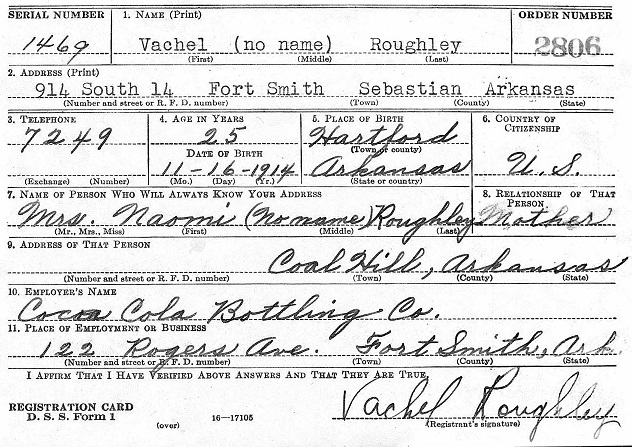 SERIAL NUMBER 1. NAME (Print) ORDER NUMBER
1469 Vachel (no name) Roughley 2806
(First) (Middle) (Last)
2. ADDRESS (Print)
914 South 14 Fort Smith Sebastian Arkansas
(Number and street or R. F. D. number) (Town) (County) (State)
3. TELEPHONE 4. AGE IN YEARS 5. PLACE OF BIRTH 6. COUNTRY OF CITIZENSHIP
7249 25 Hartford
DATE OF BIRTH (Town or county)
11-16-1914 Arkansas U.S.
(Exchange) (Number) (Mo.) (Day) (Yr.) (State or country)
7. NAME OF PERSON WHO WILL ALWAYS KNOW YOUR ADDRESS 8. RELATIONSHIP OF THAT PERSON
Mrs. Naomi (No name) Roughley Mother
(Mr., Mrs., Miss) (First) (Middle) (Last)
9. ADDRESS OF THAT PERSON
Coal Hill, Arkansas
(Number and street or R. F. D. number) (Town) (County) (State)
10. EMPLOYER'S NAME
Cocoa Cola Bottling Co.
11. PLACE OF EMPLOYMENT OR BUSINESS
122 Rogers Ave. Fort Smith, Ark.
(Number and street or R. F. D. number) (Town) (County) (State)
I AFFIRM THAT I HAVE VERIFIED ABOVE ANSWERS AND THAT THEY ARE TRUE.
Vachel Roughley
REGISTRATION CARD
D. S. S. Form 1 (over) 16-17105 (Registrant's signature)